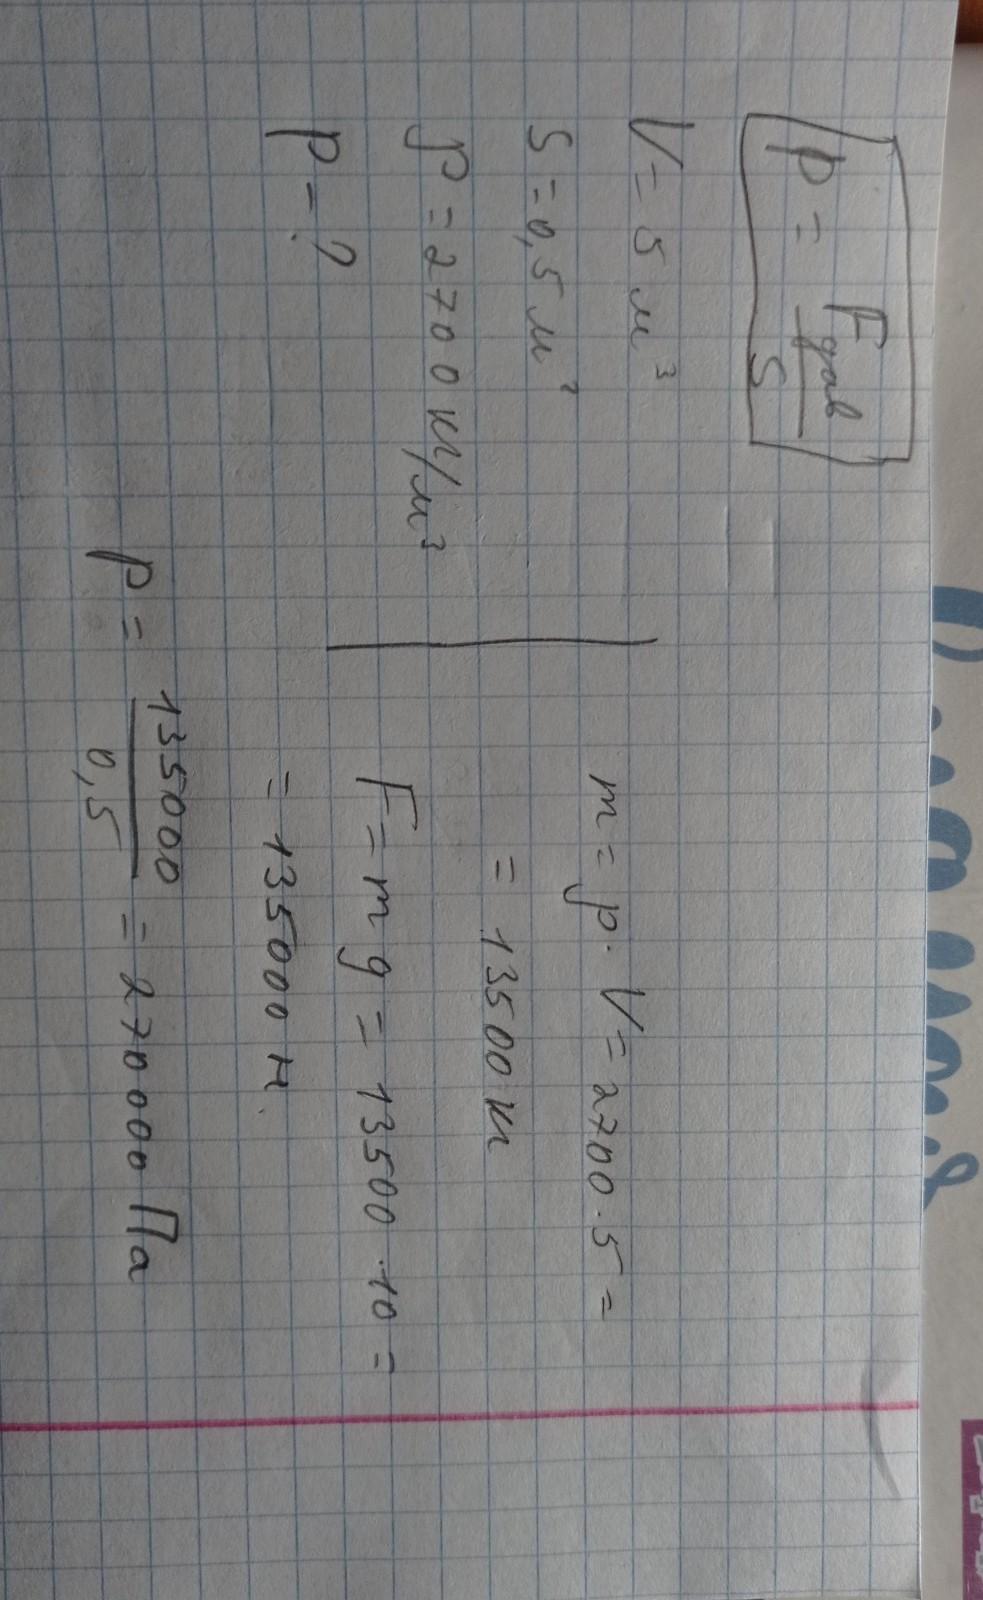 p = Fдав/S
V = 5 м³
S = 0,5 м²
ρ = 2700 кг/м³
p = ?
m = ρ · V = 2700 · 5 =
= 13500 кг
F = mg = 13500 · 10 =
= 135000 Н
p = 135000/0,5 = 270000 Па